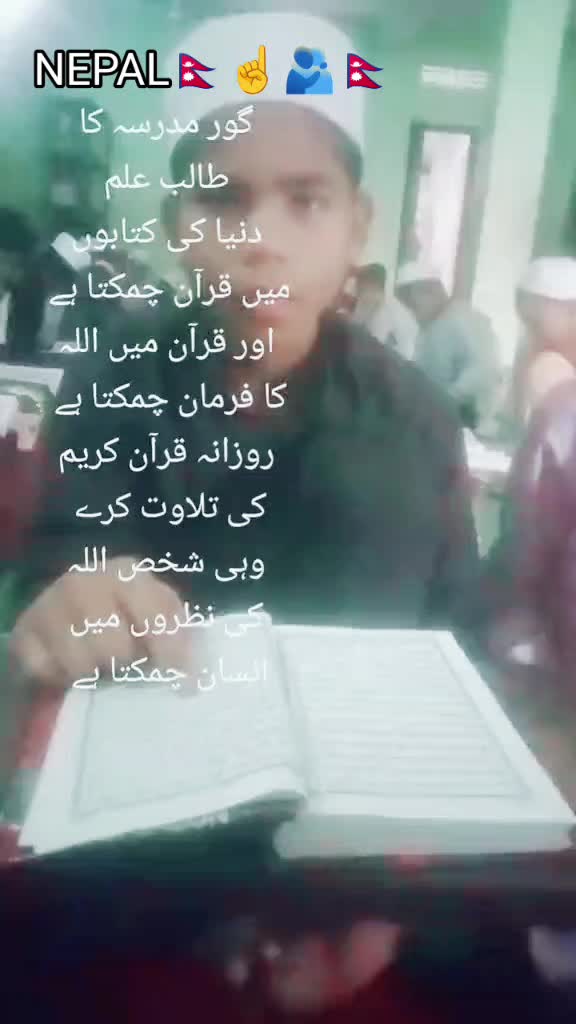 NEPAL🇳🇵☝️🫂🇳🇵
گور مدرسہ کا
طالب علم
دنیا کی کتابوں
میں قرآن چمکتا ہے
اور قرآن میں اللہ
کا فرمان چمکتا ہے
روزانہ قرآن کریم
کی تلاوت کرے
وہی شخص اللہ
کی نظروں میں
انسان چمکتا ہے